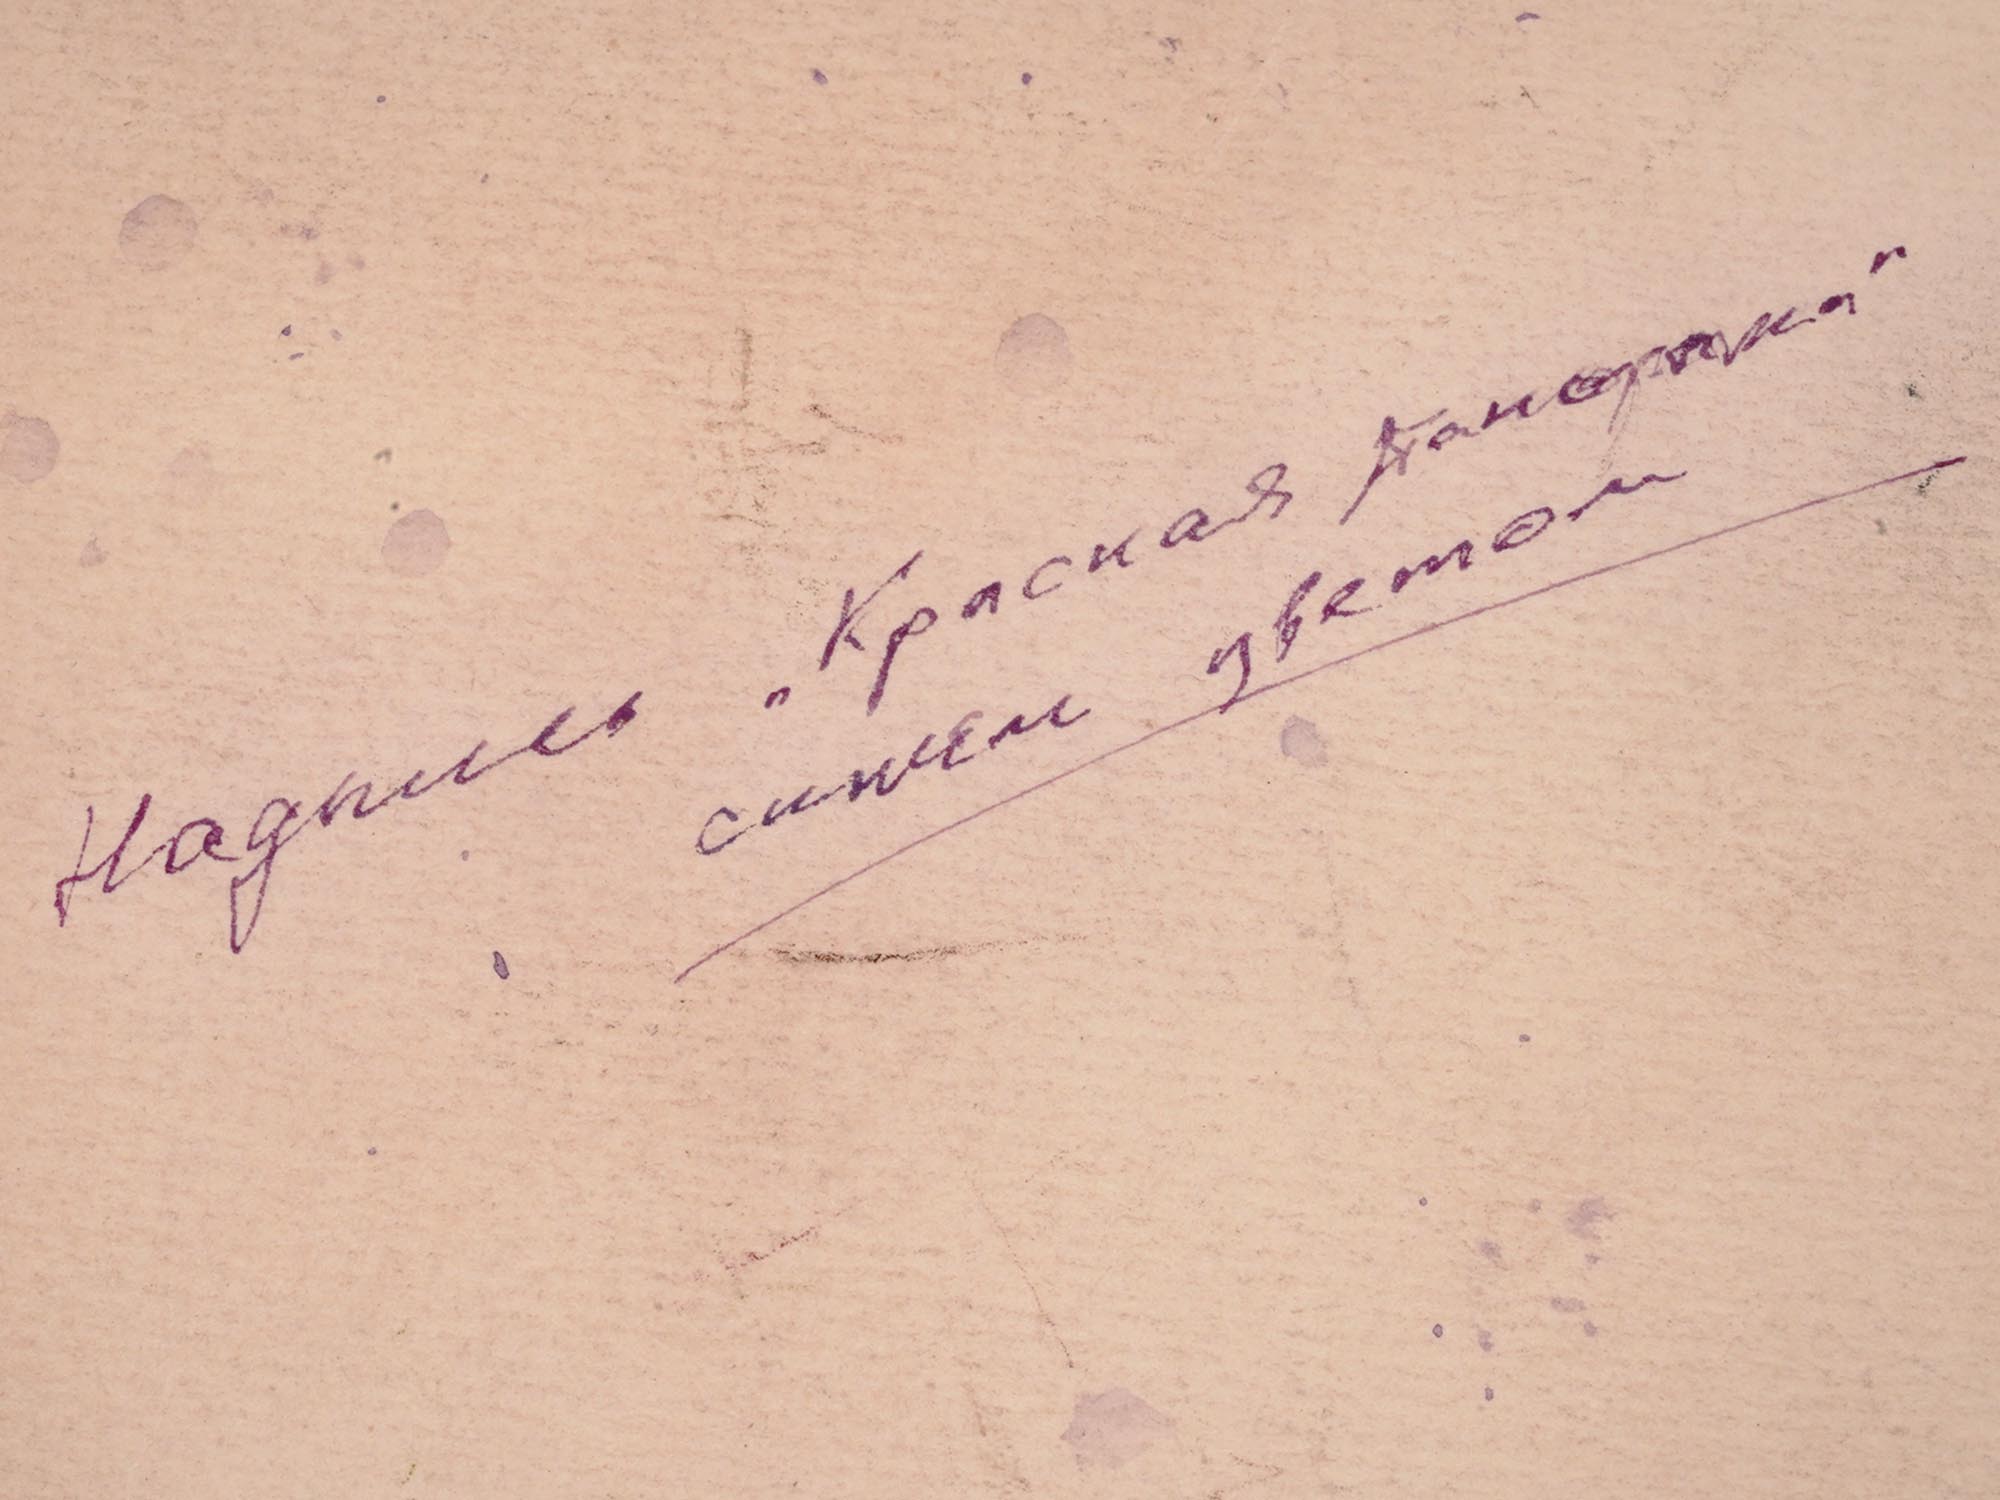 Надпись „Красная Панорама"
синем цветом